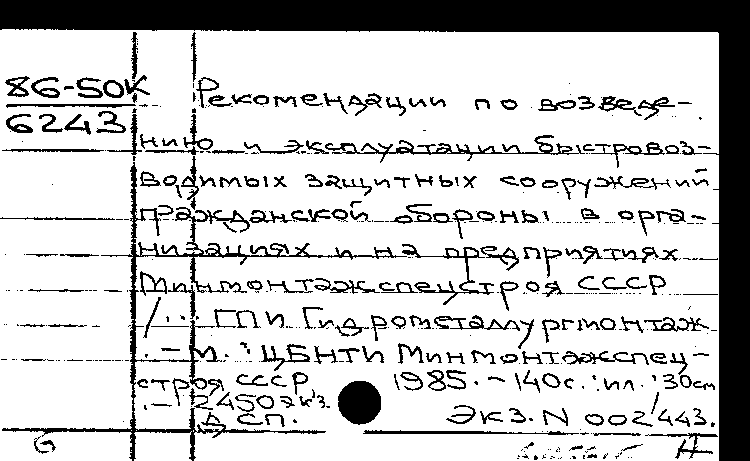 86-50К
6243
Рекомендации по возведе-
нию и эксплуатации быстровоз-
водимых защитных сооружений
гражданской обороны в орга-
низациях и на предприятиях
Минмонтажспецстроя СССР
/... ГПИ Гидрометаллургмонтаж
. - М. : ЦБНТИ Минмонтажспец-
строя СССР, 1985. - 140с. : ил. ; 30см
. - 2450экз.
ДСП. Экз. N 002443.
б